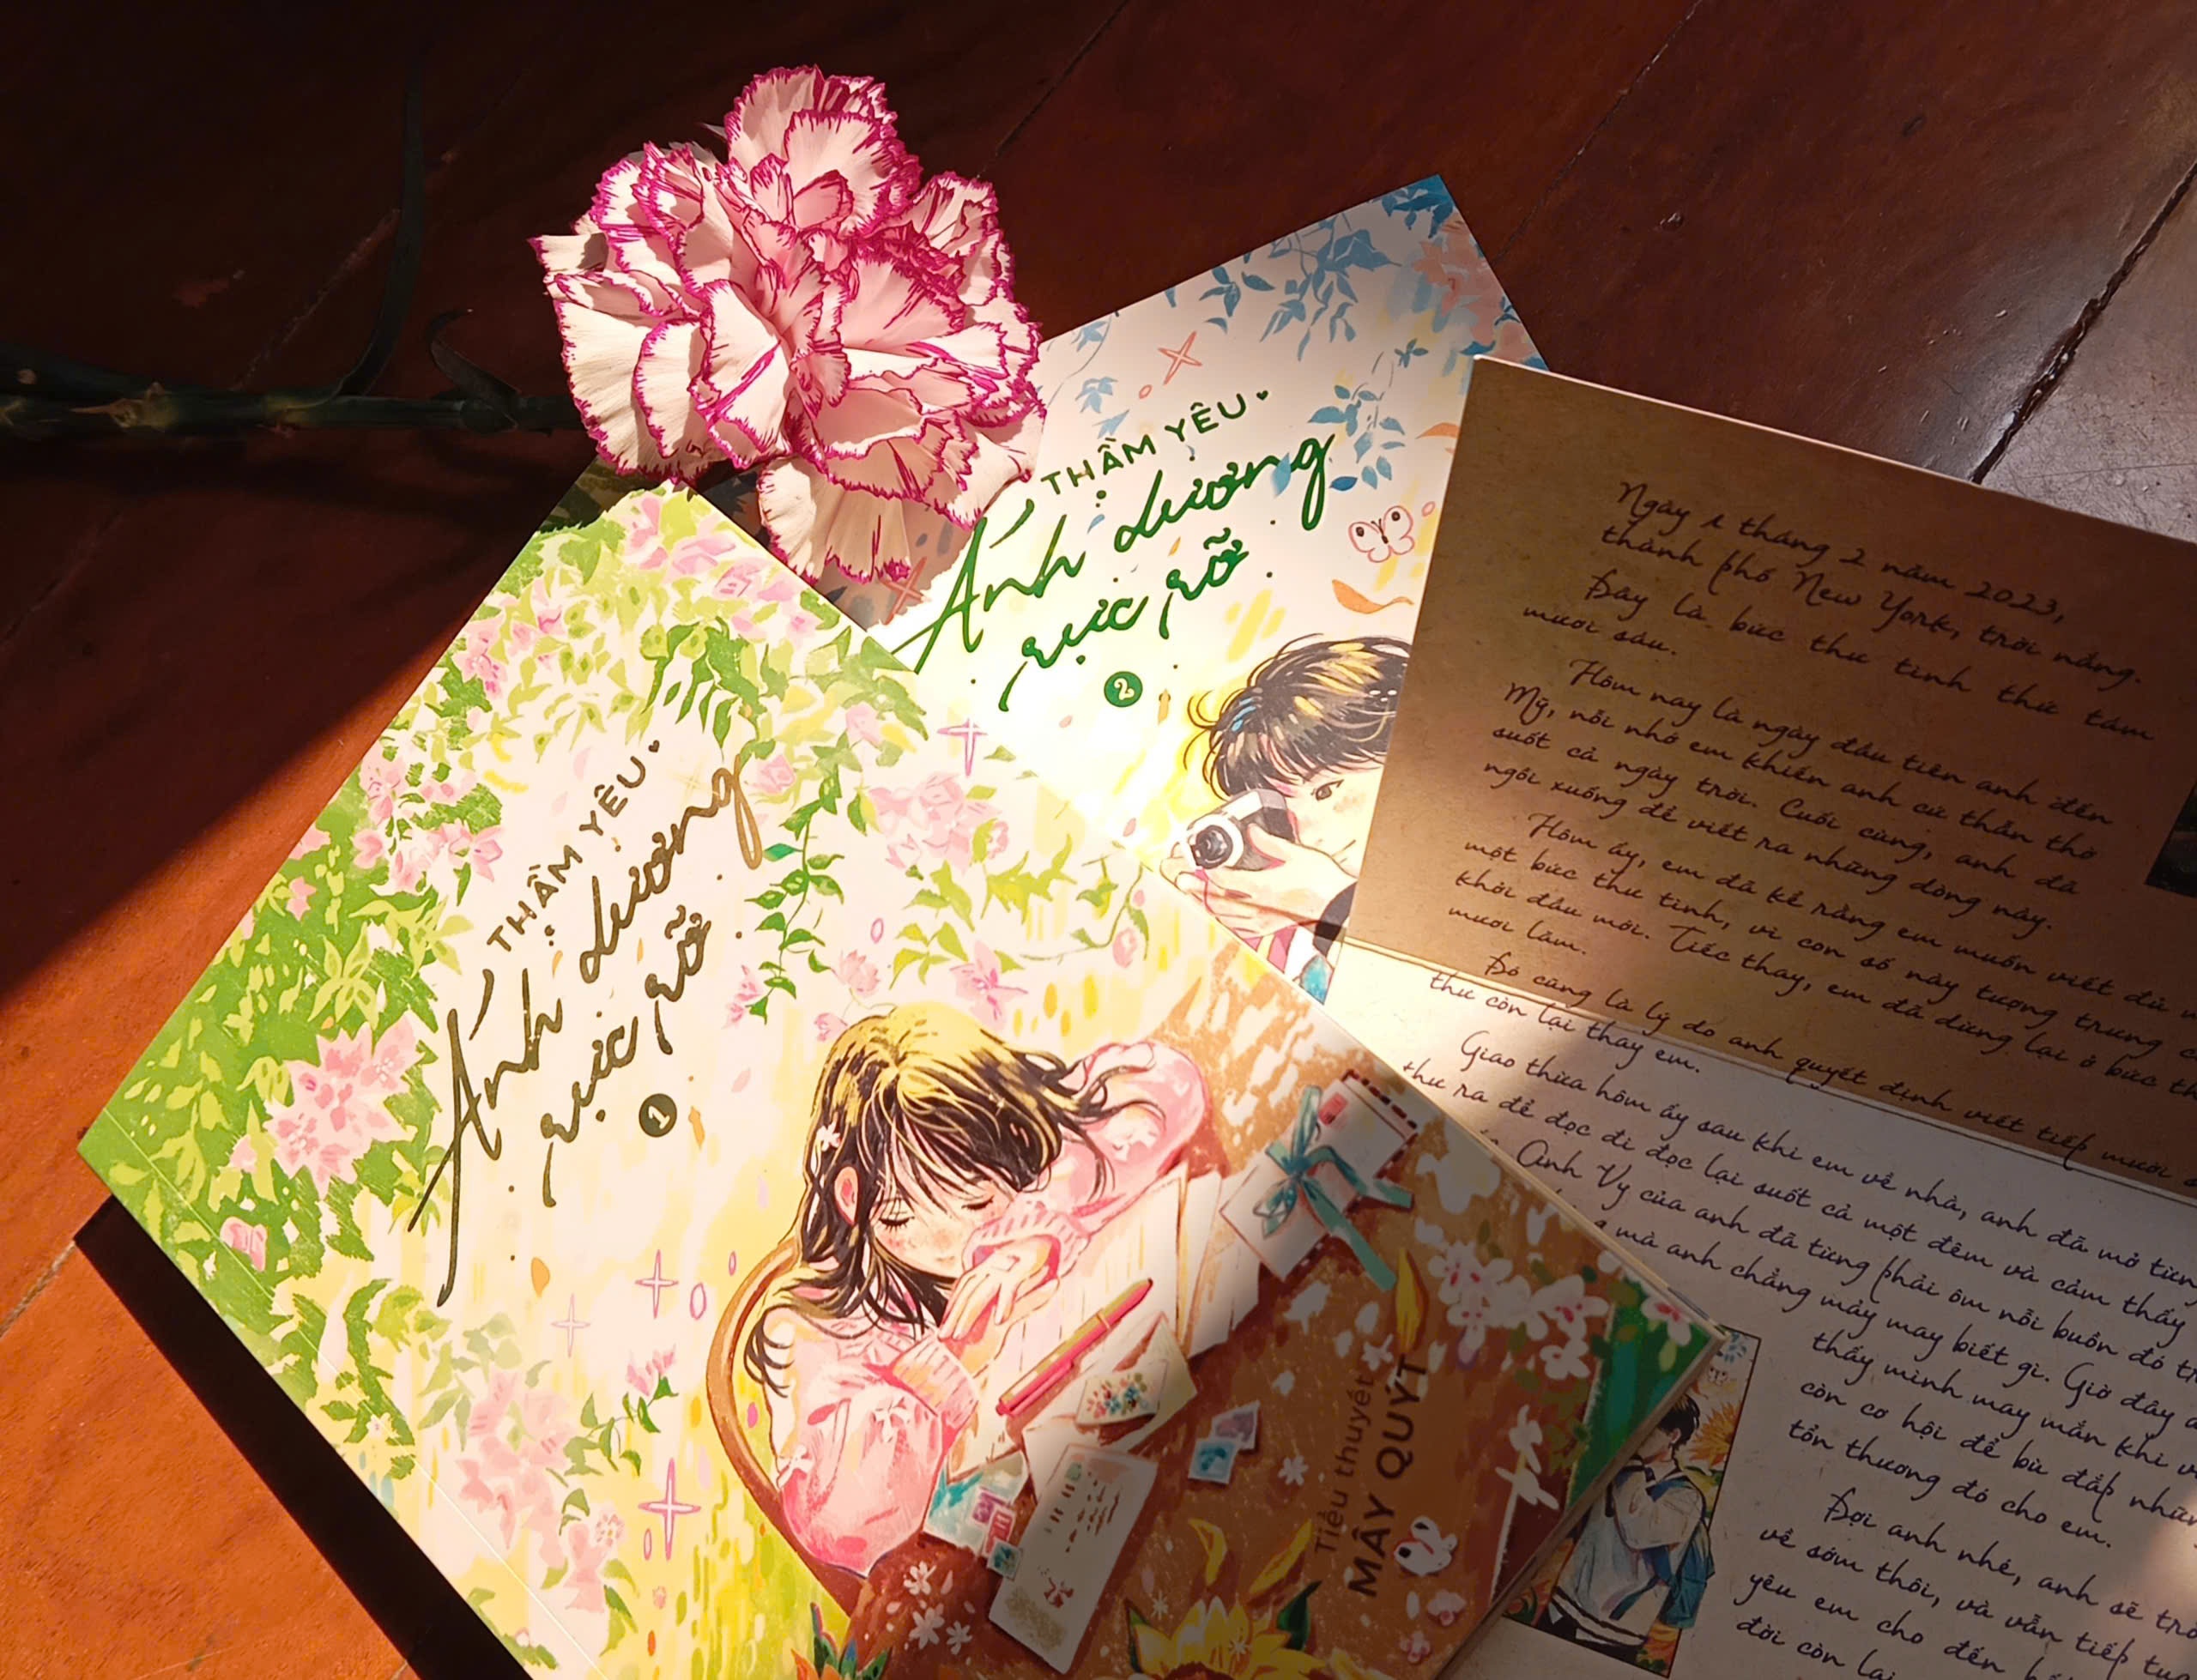 THẦM YÊU
Ánh dương
rực rỡ
1
Tiểu thuyết
MÂY QUÝT
THẦM YÊU
Ánh dương
rực rỡ
2
Ngày 1 tháng 2 năm 2023,
thành phố New York, trời nắng.
Đây là bức thư tình thứ tám
mươi sáu.
Hôm nay là ngày đầu tiên anh đến
Mỹ, nỗi nhớ em khiến anh cứ thẫn thờ
suốt cả ngày trời. Cuối cùng, anh đã
ngồi xuống để viết ra những dòng này.
Hôm ấy, em đã kể rằng em muốn viết đủ
một bức thư tình, vì con số này tượng trưng
khởi đầu mới. Tiếc thay, em đã dừng lại ở bức
mươi lăm.
Đó cũng là lý do anh quyết định viết tiếp mười
thư còn lại thay em.
Giao thừa hôm ấy sau khi em về nhà, anh đã mở từng
thư ra để đọc đi đọc lại suốt cả một đêm và cảm thấy
Anh Vy của anh đã từng phải ôm nỗi buồn đó
mà anh chẳng mảy may biết gì. Giờ đây
thấy mình may mắn khi
còn cơ hội để bù đắp
tổn thương đó cho em.
Đợi anh nhé, anh sẽ
về sớm thôi, và vẫn tiếp
yêu em cho đến
đời còn lại